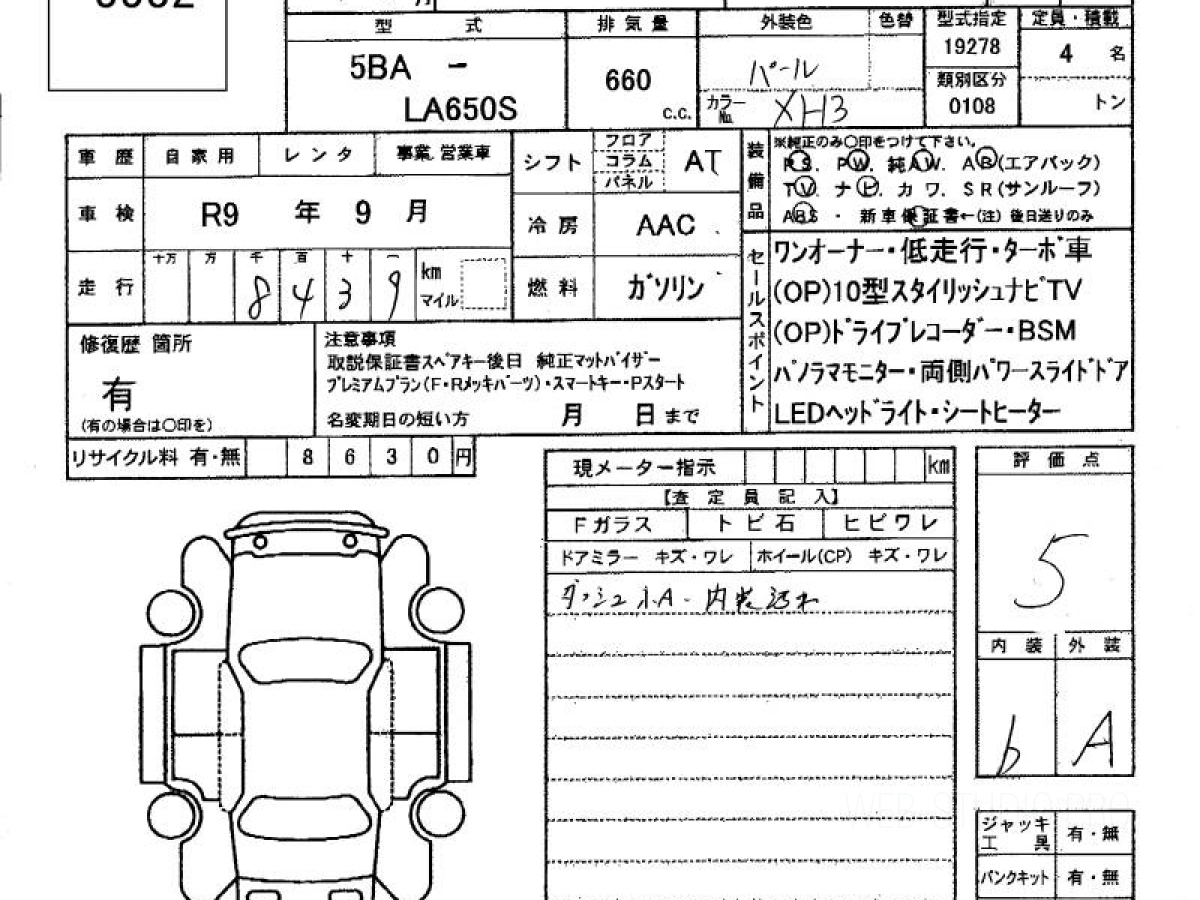 型 式 排気量 外装色 色替 型式指定 定員・積載
5BA - 660 パール 19278 4 名
LA650S c.c. カラーNo. XH3 類別区分 0108 トン
車 歴 自家用 レンタ 事業.営業車
車 検 R9 年 9 月
走 行 十万 万 千 百 十 一 km
8 4 3 9 マイル
シフト フロア コラム パネル AT
冷 房 AAC
燃 料 ガソリン
装備品 ※純正のみ〇印をつけて下さい。
PS. PW. 純AW. AB(エアバック)
TV. ナビ. カワ. SR(サンルーフ)
ABS ・ 新車保証書←(注) 後日送りのみ
セールスポイント
ワンオーナー・低走行・ターボ車
(OP)10型スタイリッシュナビTV
(OP)ドライブレコーダー・BSM
パノラマモニター・両側パワースライドドア
LEDヘッドライト・シートヒーター
修復歴 箇所
有
(有の場合は〇印を)
注意事項
取説保証書スペアキー後日 純正マットバイザー
プレミアムプラン(F・Rメッキパーツ)・スマートキー・Pスタート
名変期日の短い方 月 日 まで
リサイクル料 有・無 8 6 3 0 円
現メーター指示 km
【査 定 員 記 入】
Fガラス トビ石 ヒビワレ
ドアミラー キズ・ワレ ホイール(CP) キズ・ワレ
ダッシュ小A・内装汚れ
評 価 点
5
内 装 外 装
b A
ジャッキ工具 有・無
パンクキット 有・無